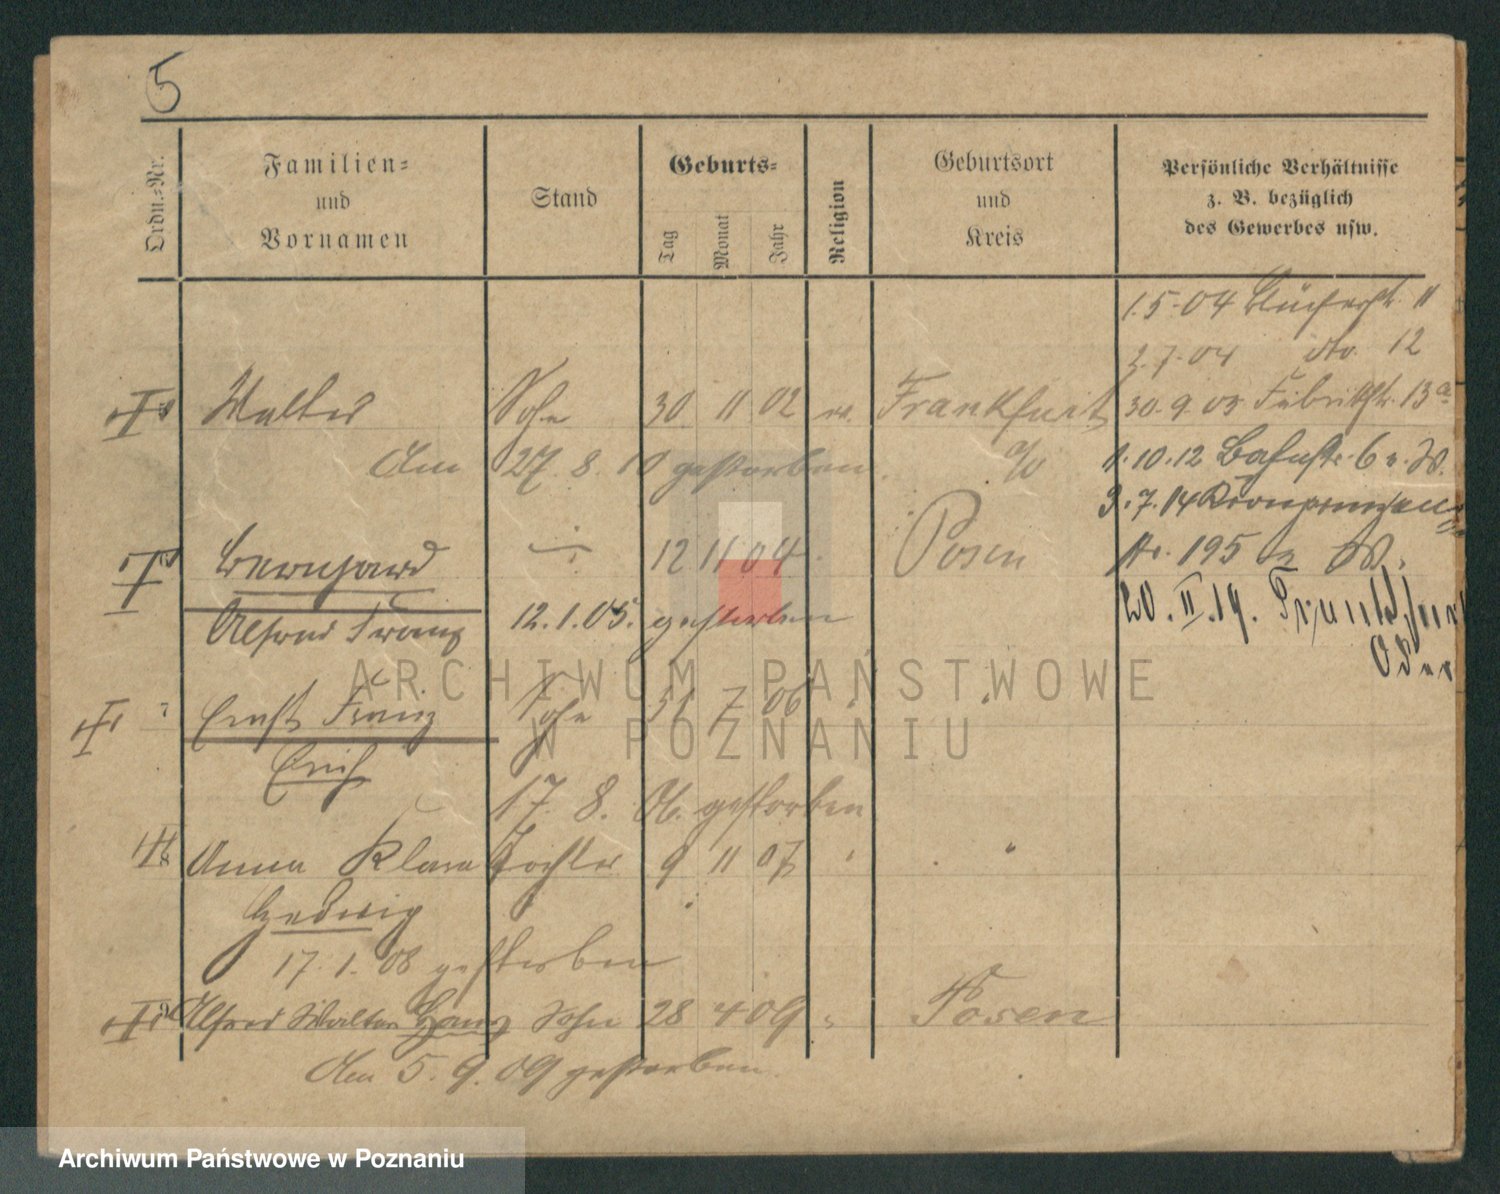 5
Ordn.-Nr.
Familien-
und
Vornamen
Stand
Geburts-
Tag
Monat
Jahr
Religion
Geburtsort
und
Kreis
Persönliche Verhältnisse
z. B. bezüglich
des Gewerbes usw.
1.5.04 11
2.7.04 do. 12
Walter Sohn 30 11 02 Frankfurt 30.9.05 Fabrikstr. 13a
Am 27.8.10 gestorben. a/O 1.10.12 6
3.7.14 Kronprinzen
Bernhard 12 11 04 Posen str. 195
Alfred Franz 12.1.05. gestorben
20.II.19. Frankfurt
Oder
Ernst Franz Sohn 31 7 06 " "
Erich
17.8.06. gestorben
Anna Klara Tochter 9 11 07 " "
Hedwig
17.1.08 gestorben
Alfred Walter Hans Sohn 28 4 09 " Posen
Am 5.9.09 gestorben.
ARCHIWUM PAŃSTWOWE
W POZNANIU
Archiwum Państwowe w Poznaniu